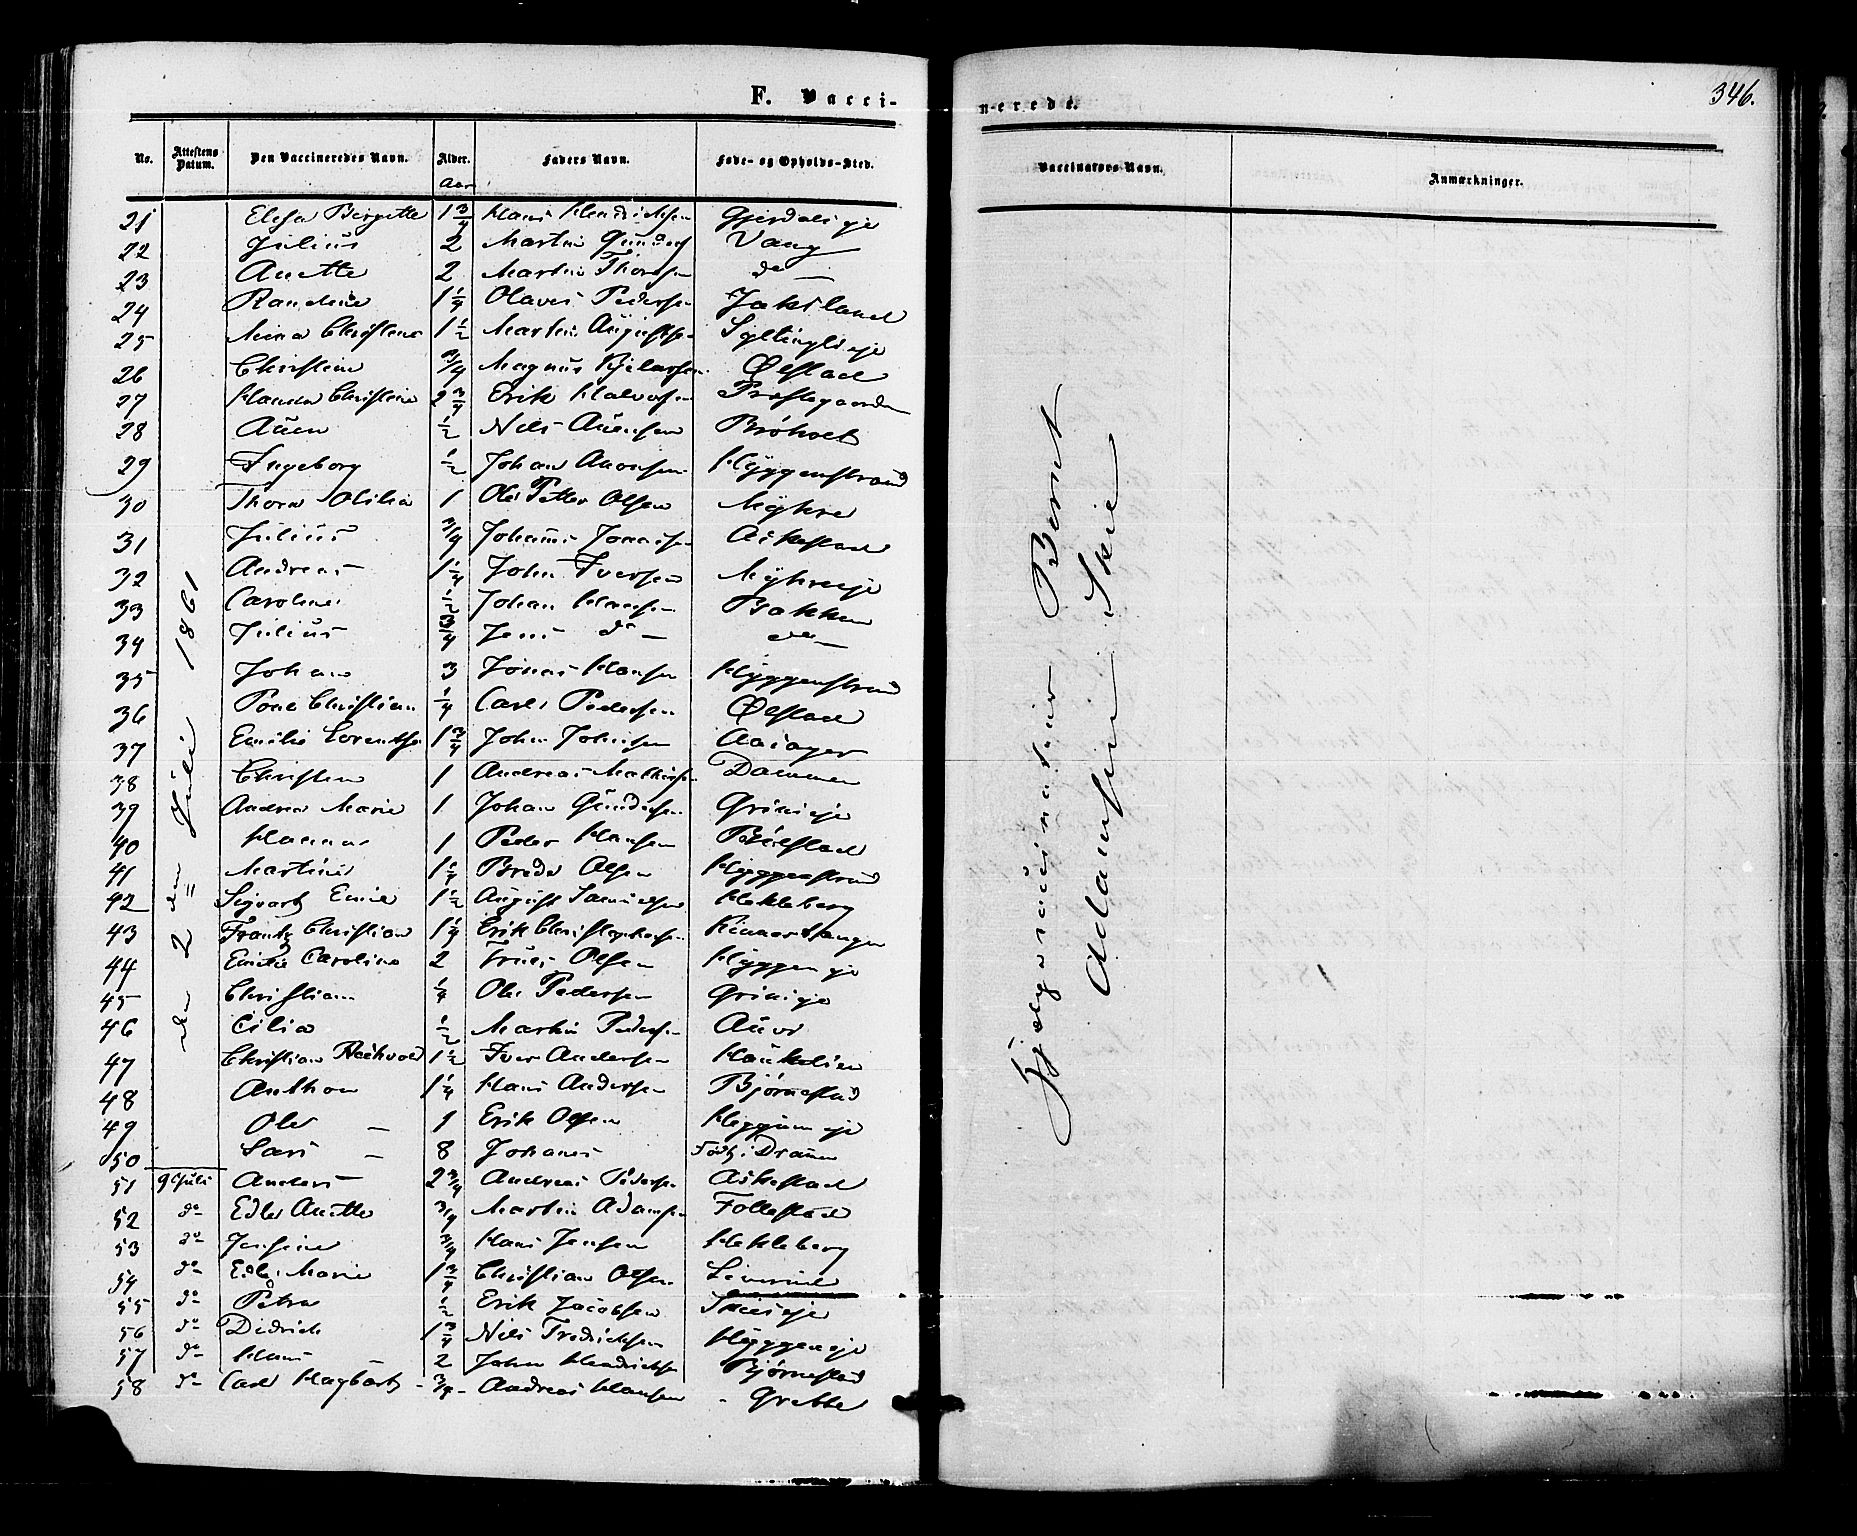 F. Vacci-
nerede.
346.
No. Attestens Datum. Den Vaccineredes Navn. Alder. Faders Navn. Føde- og Opholds-Sted. Vaccinators Navn. Anmærkninger.
Aar
den 2 den Juli 1861
21 Elesa Birgette 1 3/4 Hans Hendrichsen Gjerdaleje
22 Julius 2 Martin Vang
23 Anette 2 Martin Thordsen do
24 Randine 1 1/4 Olaves Pedersen Jaksland
25 Mina Christine 1 1/2 Martin Augustsen
26 Christine 3/4 Magnus Ølstad
27 Hanna Christine 2 3/4 Erik Halvorsen Præstegaarden
28 Auen 1/2 Nils Auensen Bröholt
29 Ingeborg 1/2 Johan Aronsen Hyggenstrand
30 Thora Otilia 1 Ole Petter Olsen Myhre
31 Julius 3/4 Johannes Jonassen Askestad
32 Andreas 1 1/4 John Iversen Myhreeje
33 Caroline 1/2 Johan Hansen Bakken
34 Julius 3/4 Jens do do
35 Johan 3 Jonas Hansen Hyggenstrand
36 Christian 1/4 Carl Pedersen Ølstad
37 Emilie Lorentse 1 3/4 John Johnsen
38 Christen 1 Andreas Mathisen Dammen
39 Andrea Marie 1 Johan Gundersen Grinieje
40 Hanna 1 Peder Hansen Bölstad
41 Martine 1 1/4 Brede Olsen Hyggenstrand
42 Sigvart Emil 1 1/2 August Samuelsen Hekleberg
43 Frantz Christian 1 1/4 Erik Christophersen Kinnertangen
44 Emilie Caroline 2 Truls Olsen Hyggen eje
45 Christian 1/4 Ole Pedersen Grinieje
46 Cilia 1/2 Martin Pedersen Auvi
47 Christian 1 1/2 Iver Andersen Hauklien
48 Anthon 1 1/4 Hans Andersen Bjørnestad
49 Ole 1 Erik Olsen Heggum eje
50 Lars 8 Johanes Født i Drammen
51 9 Juli Anders 2 3/4 Andreas Pedersen Askestad
52 do Edle Anette 3/4 Martin Adamsen Follestad
53 do Josefine 3/4 Hans Jensen Hekleberg
54 do Edle Marie 1 3/4 Christian Olsen
55 do Petra 1/2 Erik Jacobsen Skieseje
56 do Didrich 1 3/4 Nils Fredrichsen Hyggeneje
57 do Hans 2 John Hendrichsen Bjørnestad
58 do Carl Hagbarth 3/4 Andreas Hansen Grette
Hjelpevaccinateur Bernt
Adamsen Skie